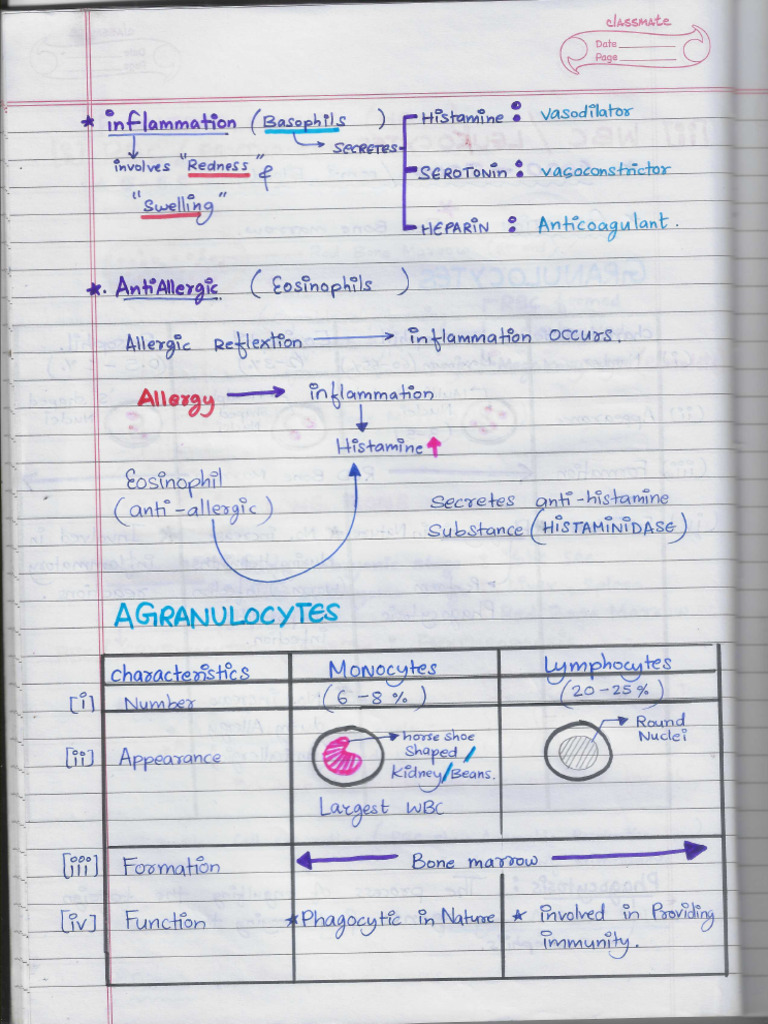 classmate
Date
Page
* inflammation (Basophils) SECRETES Histamine : vasodilator
involves "Redness" &
"Swelling"
SEROTONIN : vasoconstrictor
HEPARIN : Anticoagulant.
*. AntiAllergic (Eosinophils)
Allergic Reflextion → inflammation occurs.
Allergy → inflammation
↓
Histamine ↑
Eosinophil
(anti-allergic)
Secretes anti-histamine
Substance (HISTAMINIDASE)
AGRANULOCYTES
characteristics Monocytes Lymphocytes
[i] Number (6-8%) (20-25%)
[ii] Appearance
horse shoe
Shaped /
Kidney/Beans.
Largest WBC
Round
Nuclei
[iii] Formation Bone marrow
[iv] Function * Phagocytic in Nature * involved in Providing
immunity.